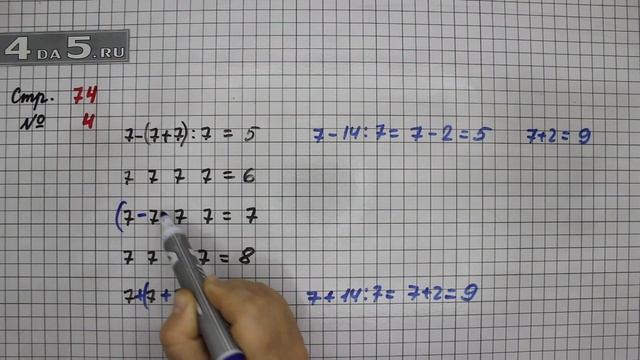 4DA5.RU
Стр. 74
№ 4
7-(7+7):7=5 7-14:7= 7-2=5 7+2=9
7 7 7 7=6
(7-7-7 7=7
7 7 7=8
7+(7+ 7+14:7= 7+2=9